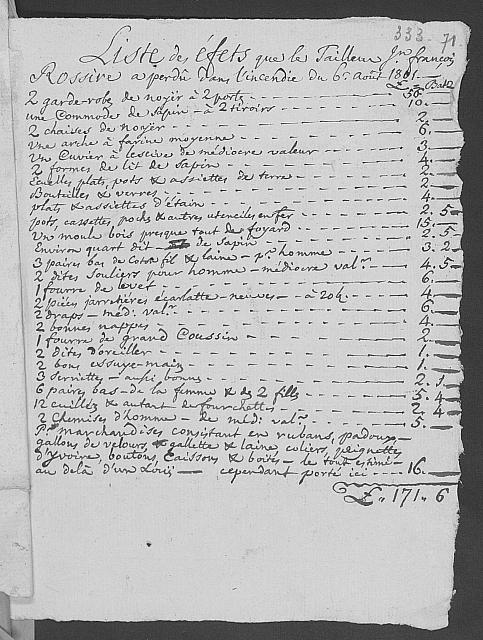 333. 71
Liste des éfets que le Tailleur Jn. françois
Rossire a perdû dans l'incendie du 6e. Août 1801 —
L. Batz
2 garde-robe de noÿer à 2 portes — 50. —
une Commode de sapin — à 2 tiroirs — 10. —
2 chaises de noÿer — 2. —
une arche à farine moyenne — 6. —
un Cuvier à lessive de médiocre valeur — 3. —
2 formes de lit de sapin — 4. —
Ecuelles plats, pots & assiettes de terre — 2. —
Bouteilles & verres — 2. —
plats & assiettes d'étain — 4. —
pots, cassettes, poches & autres utenciles en fer — 2. 5 —
Un moule bois presque tout de foyard — 15. —
Environ quart dit — de sapin — 2. 5 —
3 paires bas de coton fil & laine — pr. homme — 3. 2 —
2 dites souliers pour homme — médiocre valr. — 4. 5 —
1 fourre de levet — 6. —
2 pièces jarretières écarlatte neuves — à 20h. — 4. —
2 draps — méd: valr. — 6. —
2 bonnes nappes — 4. —
1 fourre de grand Coussin — 2. —
2 dites d'oreiller — 1. —
2 bons essuye-main — 1. —
3 serviettes — aussi bonnes — 2. 1
6 paires bas — de la femme & des 2 filles — 5. 4 —
12 cuillès & autant de fourchettes — 2. 4 —
2 Chemises d'homme — de méd: valr. — 5. —
Pr. marchandises consistant en rubans, padoux —
gallons de velours, & gallette & laine coliers, peignettes
d'yvoire, boutons, Caissons & boites — le tout estimé —
au delà d'un Louis — cependant porté ici — 16. —
L. 171. 6